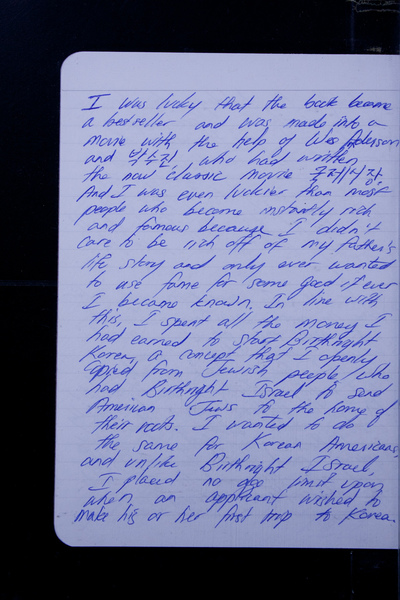 I was lucky that the book became
a bestseller and was made into a
movie with the help of Wes Anderson
and 박수진, who had written
the now classic movie 국제시장.
And I was even luckier than most
people who become instantly rich
and famous because I didn't
care to be rich off of my father's
life story and only ever wanted
to use fame for some good if ever
I became known. In line with
this, I spent all the money I
had earned to start Birthright
Korea, a concept that I openly
copied from Jewish people who
had Birthright Israel to send
American Jews to the home of
their roots. I wanted to do
the same for Korean Americans,
and unlike Birthright Israel,
I placed no age limit upon
when an applicant wished to
make his or her first trip to Korea.